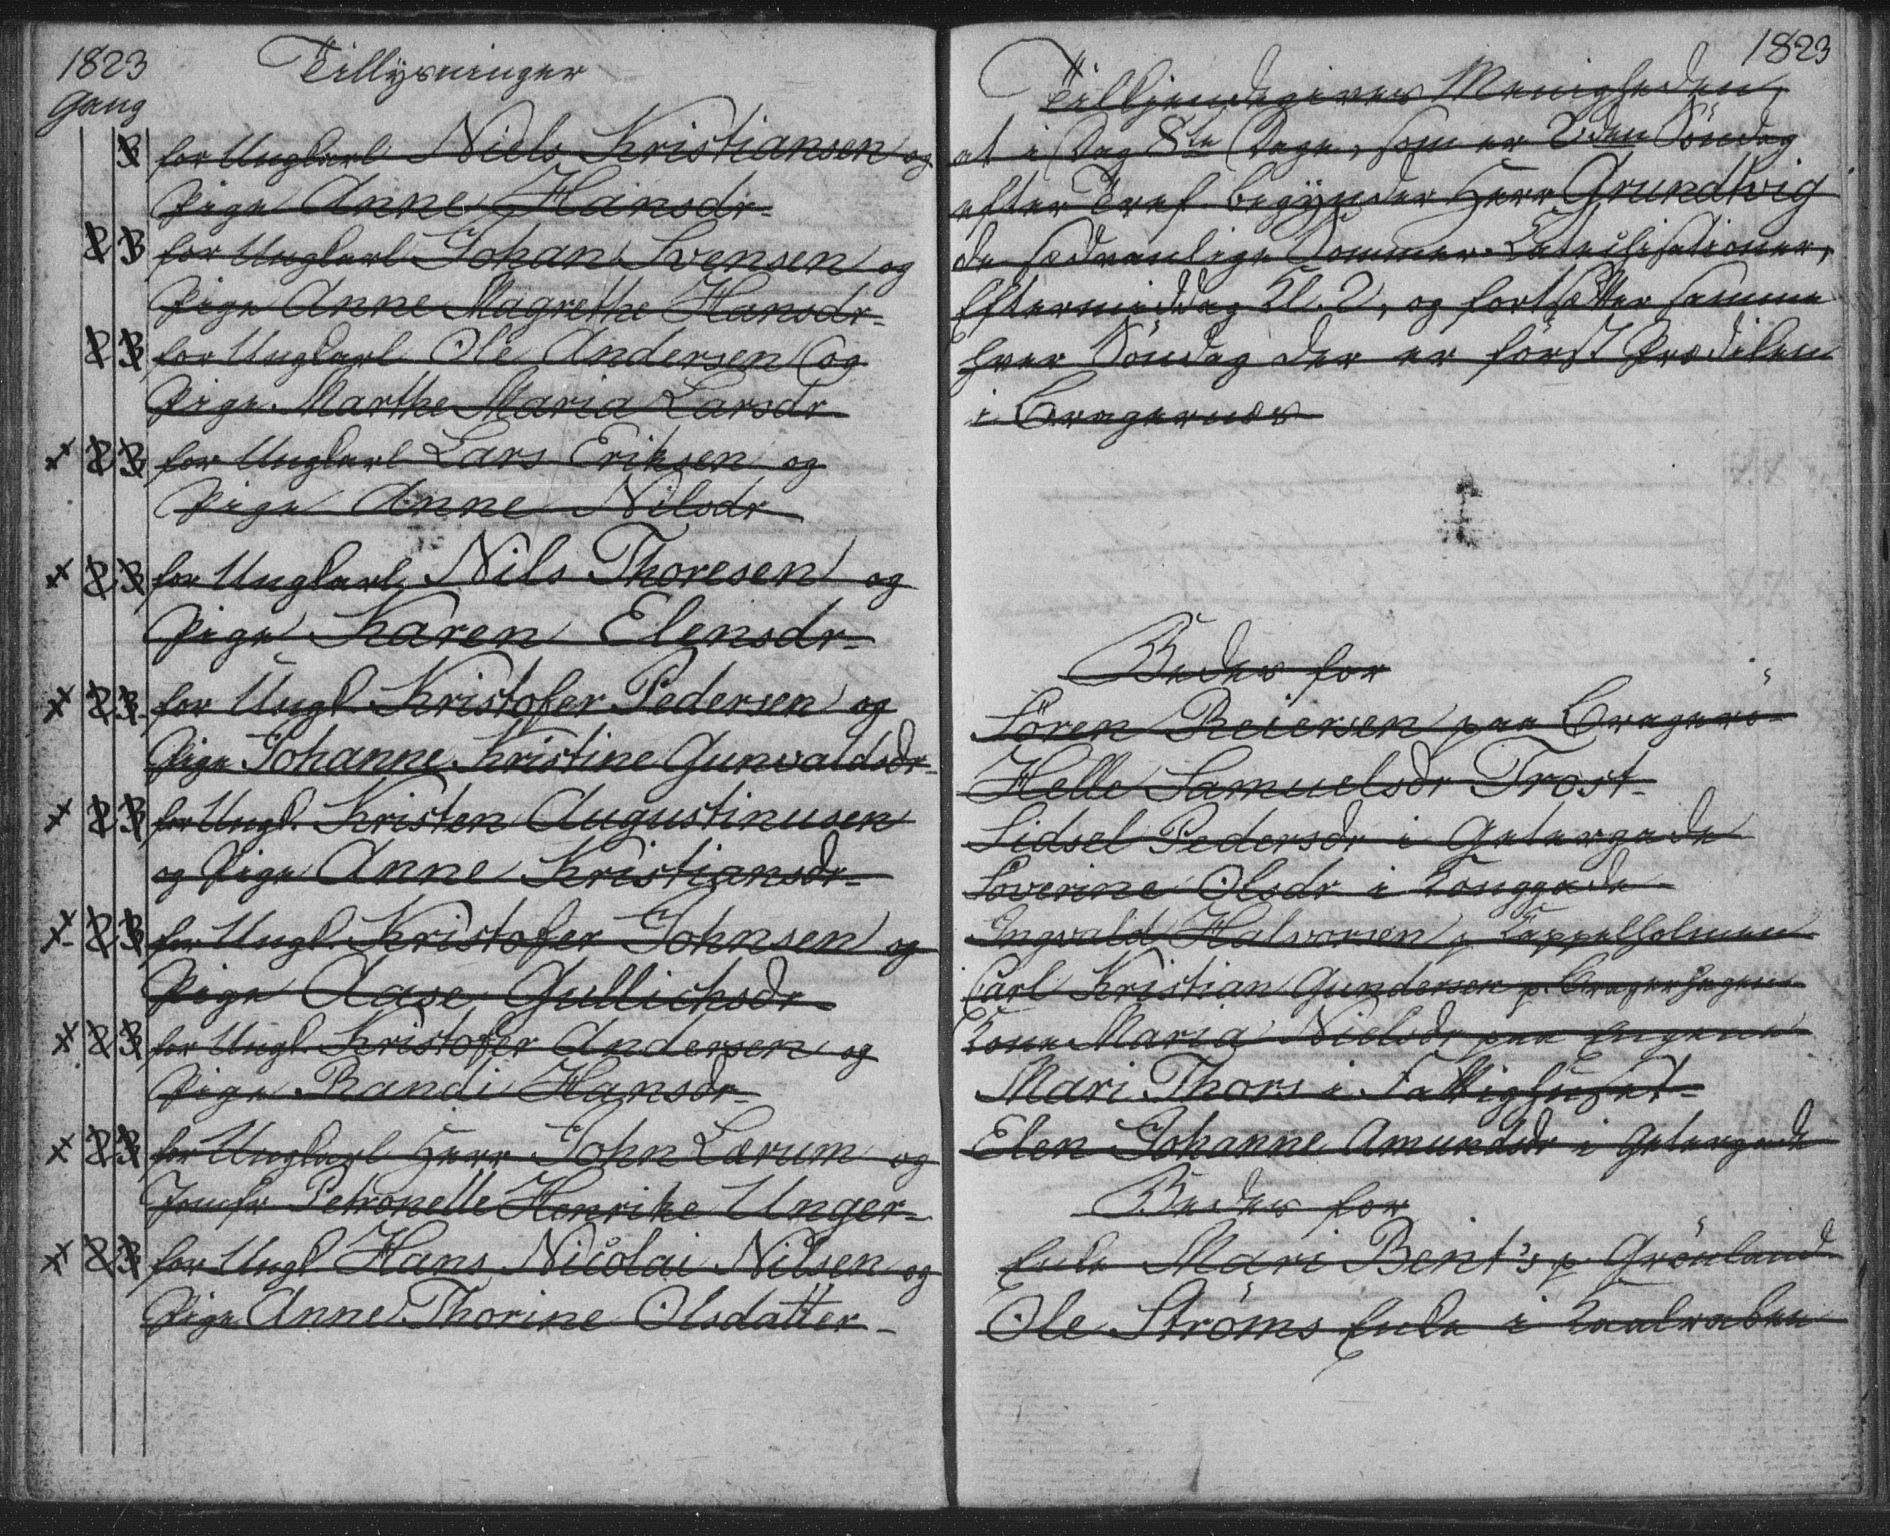 1823
Tillysninger
Gang
3 for Ungkarl Niels Kristiansen og
Pige Anne Hansdr
2 3 for Ungkarl Johan Svensen og
Pige Anne Magrethe Hansdr
2 3 for Ungkarl Ole Andersen og
Pige Marthe Maria Larsdr
x 2 3 for Ungkarl Lars Eriksen og
Pige Anne Nilsdr
x 2 3 for Ungkarl Nils Thoresen og
Pige Karen Elensdr
x 2 3 for Ungk. Kristofer Pedersen og
Pige Johanne Kristine Gunvaldsdr
x 2 3 for Ungk. Kristen Augustinusen
og Pige Anne Kristiansdr
x 2 3 for Ungk. Kristofer Johnsen og
Pige Aase Gullichsdr
x 2 3 for Ungk. Kristofer Andersen og
Pige Randi Hansdr
x 2 3 for Ungkarl Herr John Lærum og
Jomfr Petronelle Henrike Unger
x 2 3 for Ungk Hans Nicolai Nilsen og
Pige Anne Thorine Olsdatter
1823
Tilkjendegives Menigheden,
at i Dag 8te Dage, som er 2den Söndag
efter Tref. begynder Herr Grundtvig
de sædvanlige Sommer-Catechisationer,
Eftermiddag Kl. 2, og fortsætter samme
hver Söndag der er först Prædiken
i Bragernes
Bedes for
Sören Reiersen paa Bragerö
Helle Samuelsdr Trost
Sidsel Pedersdr i Getergade
Soverine Olsdr i Konggade
Ingvald Halvorsen p. Kappelholmen
Carl Kristian Gundersen p. Bragerhagen
Kone Maria Nielsdr paa Engene
Mari Thors i Fattighuset
Elen Johanne Amundsdr i Getergade
Bedes for
Enke Mari Bent's p. Grönland
Ole Ströms Enke i